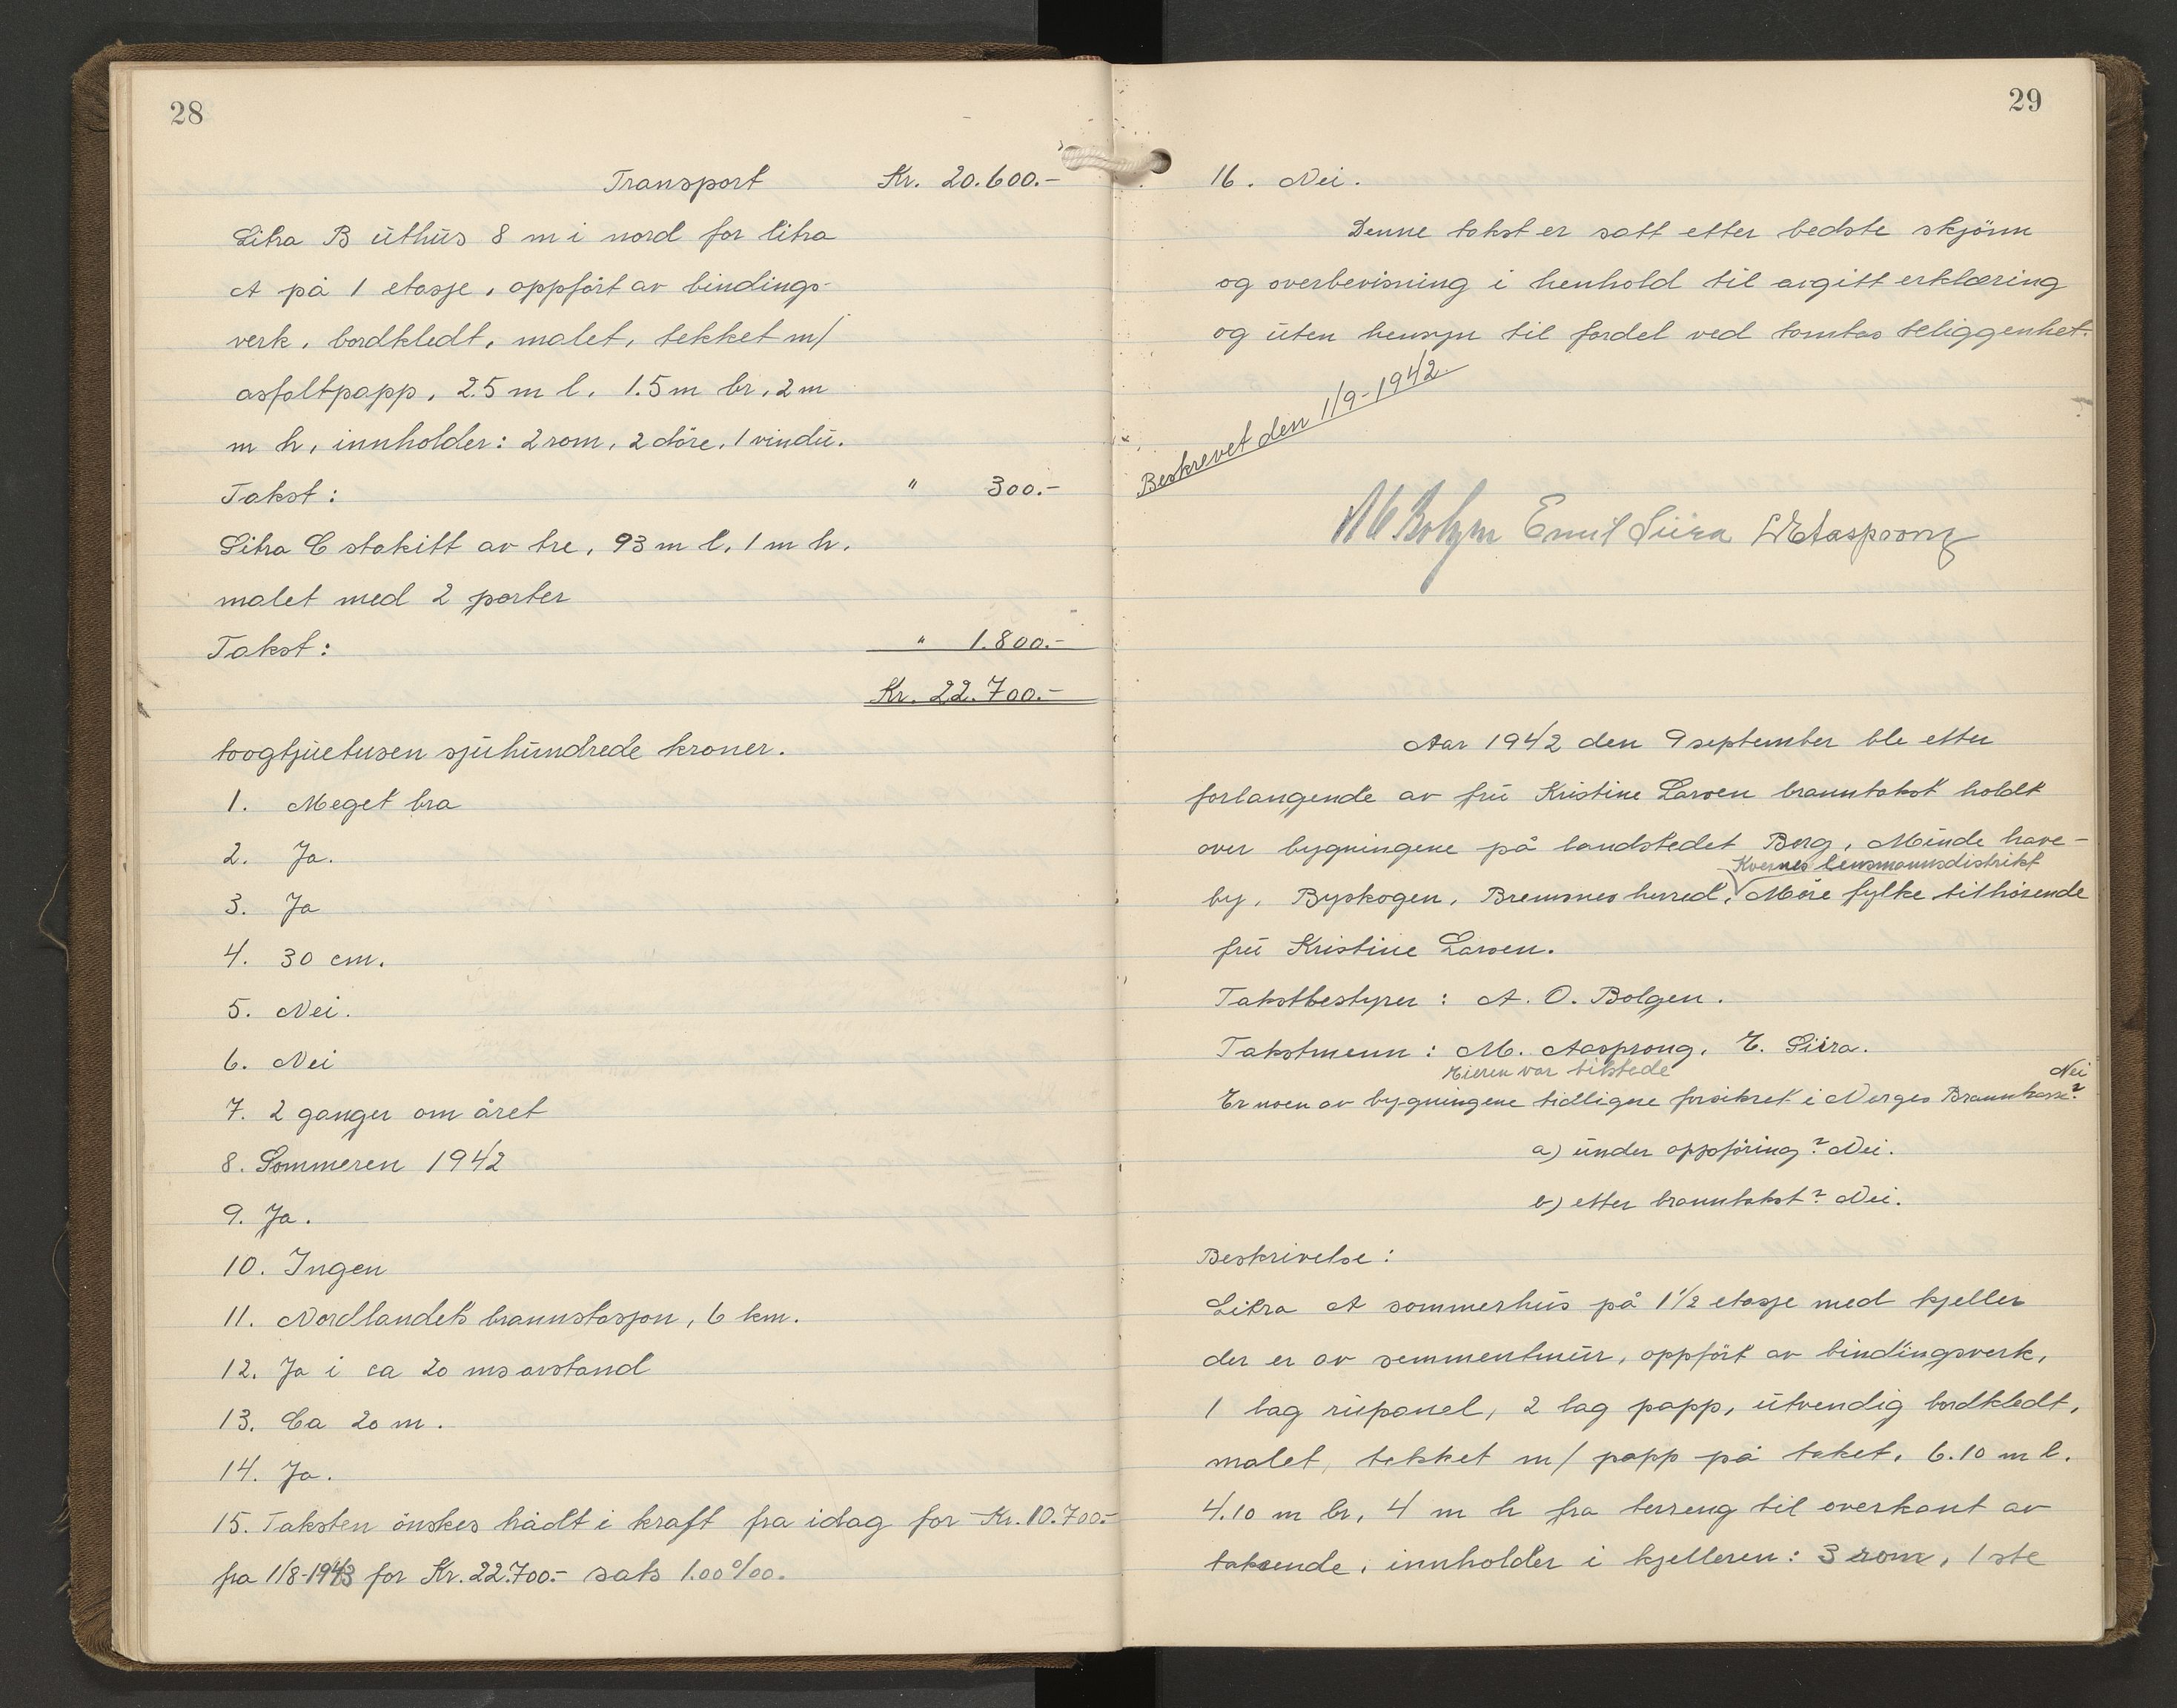 28
Transport Kr. 20.600.-
Litra B uthus 8 m i nord for litra
A på 1 etasje, oppført av bindings-
verk, bordkledt, malet, tekket m/
asfaltpapp, 2.5 m l. 1.5 m br, 2 m
m h, innholder: 2 rom, 2 döre, 1 vindu.
Takst: " 300.-
Litra C stakitt av tre, 93 m l, 1 m h.
malet med 2 porter
Takst: " 1.800.-
Kr. 22.700.-
toogtjuetusen sjuhundrede kroner.
1. Meget bra
2. Ja.
3. Ja
4. 30 cm.
5. Nei.
6. Nei
7. 2 ganger om året
8. Sommeren 1942
9. Ja.
10. Ingen
11. Nordlandets brannstasjon, 6 km.
12. Ja i ca 20 ms avstand
13. Ca 20 m.
14. Ja.
15. Taksten önskes trådt i kraft fra idag for Kr. 10.700.-
fra 1/8-1943 for Kr. 22.700.- sats 1.00 0/00.
29
16. Nei.
Denne takst er satt etter bedste skjönn
og overbevisning i henhold til avgitt erklæring
og uten hensyn til fordel ved tomtas beliggenhet.
Beskrevet den 1/9-1942.
Emil Siira M Aasprong
Aar 1942 den 9 september ble etter
forlangende av fru Kristine Larsen branntakst holdt
over bygningene på landstedet Berg, Minde have-
Kvernes lensmannsdistrikt
by, Byskogen, Bremsnes herred, Möre fylke tilhörende
fru Kristine Larsen.
Takstbestyrer: A. O. Bolgen.
Takstmenn: M. Aasprong, E. Siira.
Eieren var tilstede
Nei
Er noen av bygningene tidligere forsikret i Norges Brannkasse?
a) under oppföring? Nei.
b) etter branntakst? Nei.
Beskrivelse:
Litra A sommerhus på 1 1/2 etasje med kjeller
der er av semmentmur, oppfört av bindingsverk,
1 lag rupanel, 2 lag papp, utvendig bordkledt,
malet, tekket m/ papp på taket. 6.10 m l.
4.10 m br, 4 m h fra terreng til overkant av
taksende, innholder i kjelleren: 3 rom, 1 ste